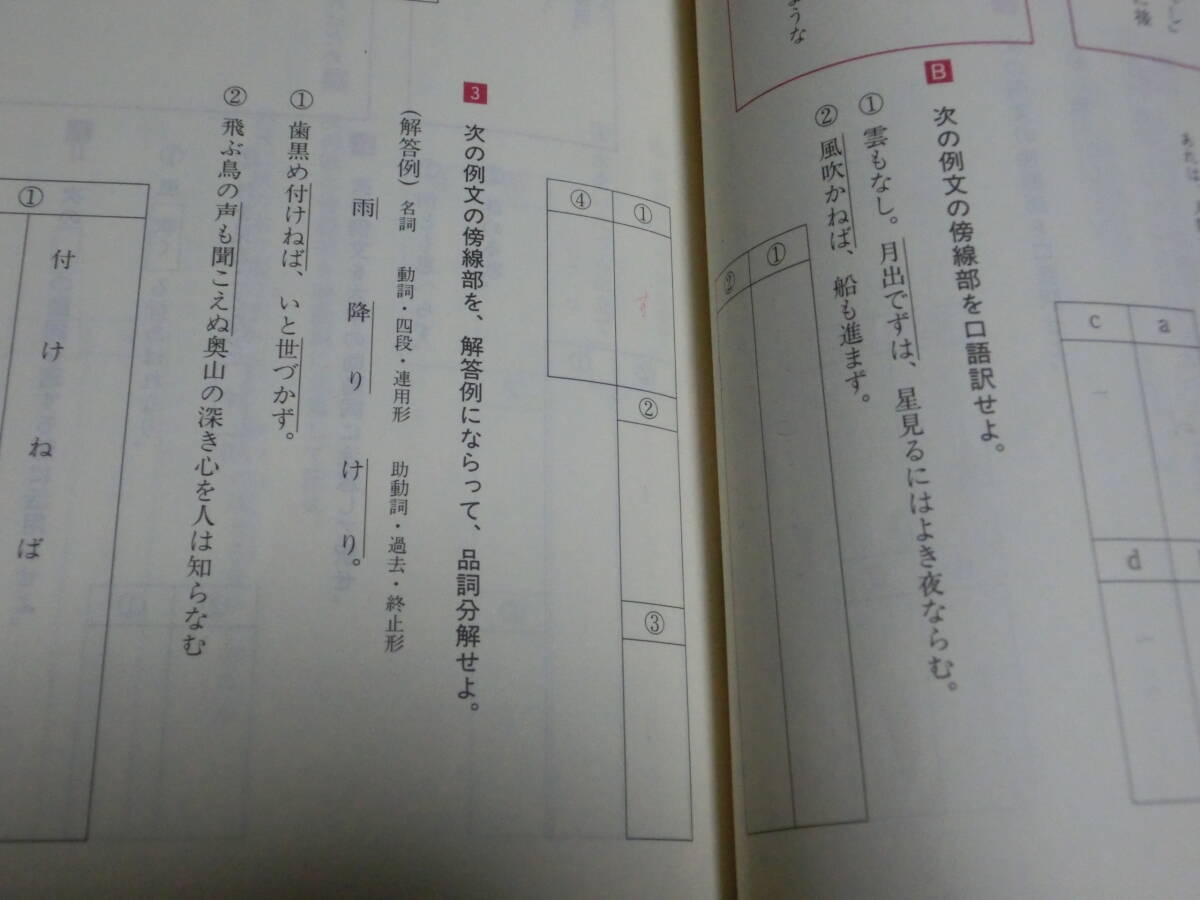 しど
た後
あれは
ような
B 次の例文の傍線部を口語訳せよ。
① 雲もなし。月出でずは、星見るにはよき夜ならむ。
② 風吹かねば、船も進まず。
a
c
d
①
②
①
②
③
④
3 次の例文の傍線部を、解答例にならって、品詞分解せよ。
(解答例) 名詞 動詞・四段・連用形 助動詞・過去・終止形
雨 降り けり。
① 歯黒め付けねば、いと世づかず。
② 飛ぶ鳥の声も聞こえぬ奥山の深き心を人は知らなむ
①
付け ね ば